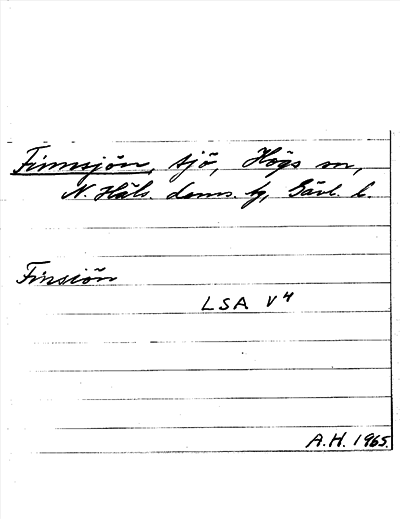 Finnsjön, sjö, Högs sn,
N. Häls. doms. tg, Gävl. l.
Finsiön
LSA V4
A.H. 1965.